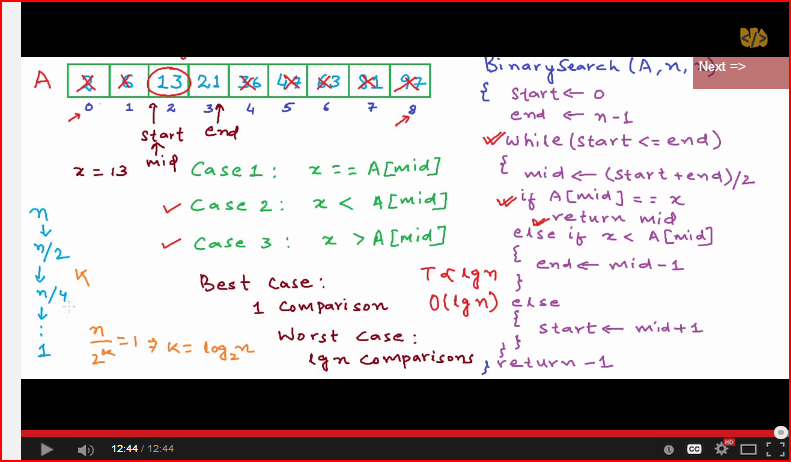 </>
Next =>
A 13 21
0 1 2 3 4 5 6 7 8
start end
mid
x = 13
Case 1 : x == A[mid]
Case 2 : x < A[mid]
Case 3 : x > A[mid]
n
↓
n/2
↓
n/4
↓
⋮
1
K
n/2^K = 1 ⇒ K = log₂n
Best case :
1 comparison
Worst case :
lgn comparisons
T ∝ lgn
O(lgn)
BinarySearch (A, n,
{ start ← 0
end ← n-1
while (start <= end)
{ mid ← (start + end)/2
if A[mid] == x
return mid
else if x < A[mid]
{
end ← mid-1
}
else
{
start ← mid+1
}
}
} return -1
12:44 / 12:44
CC
HD